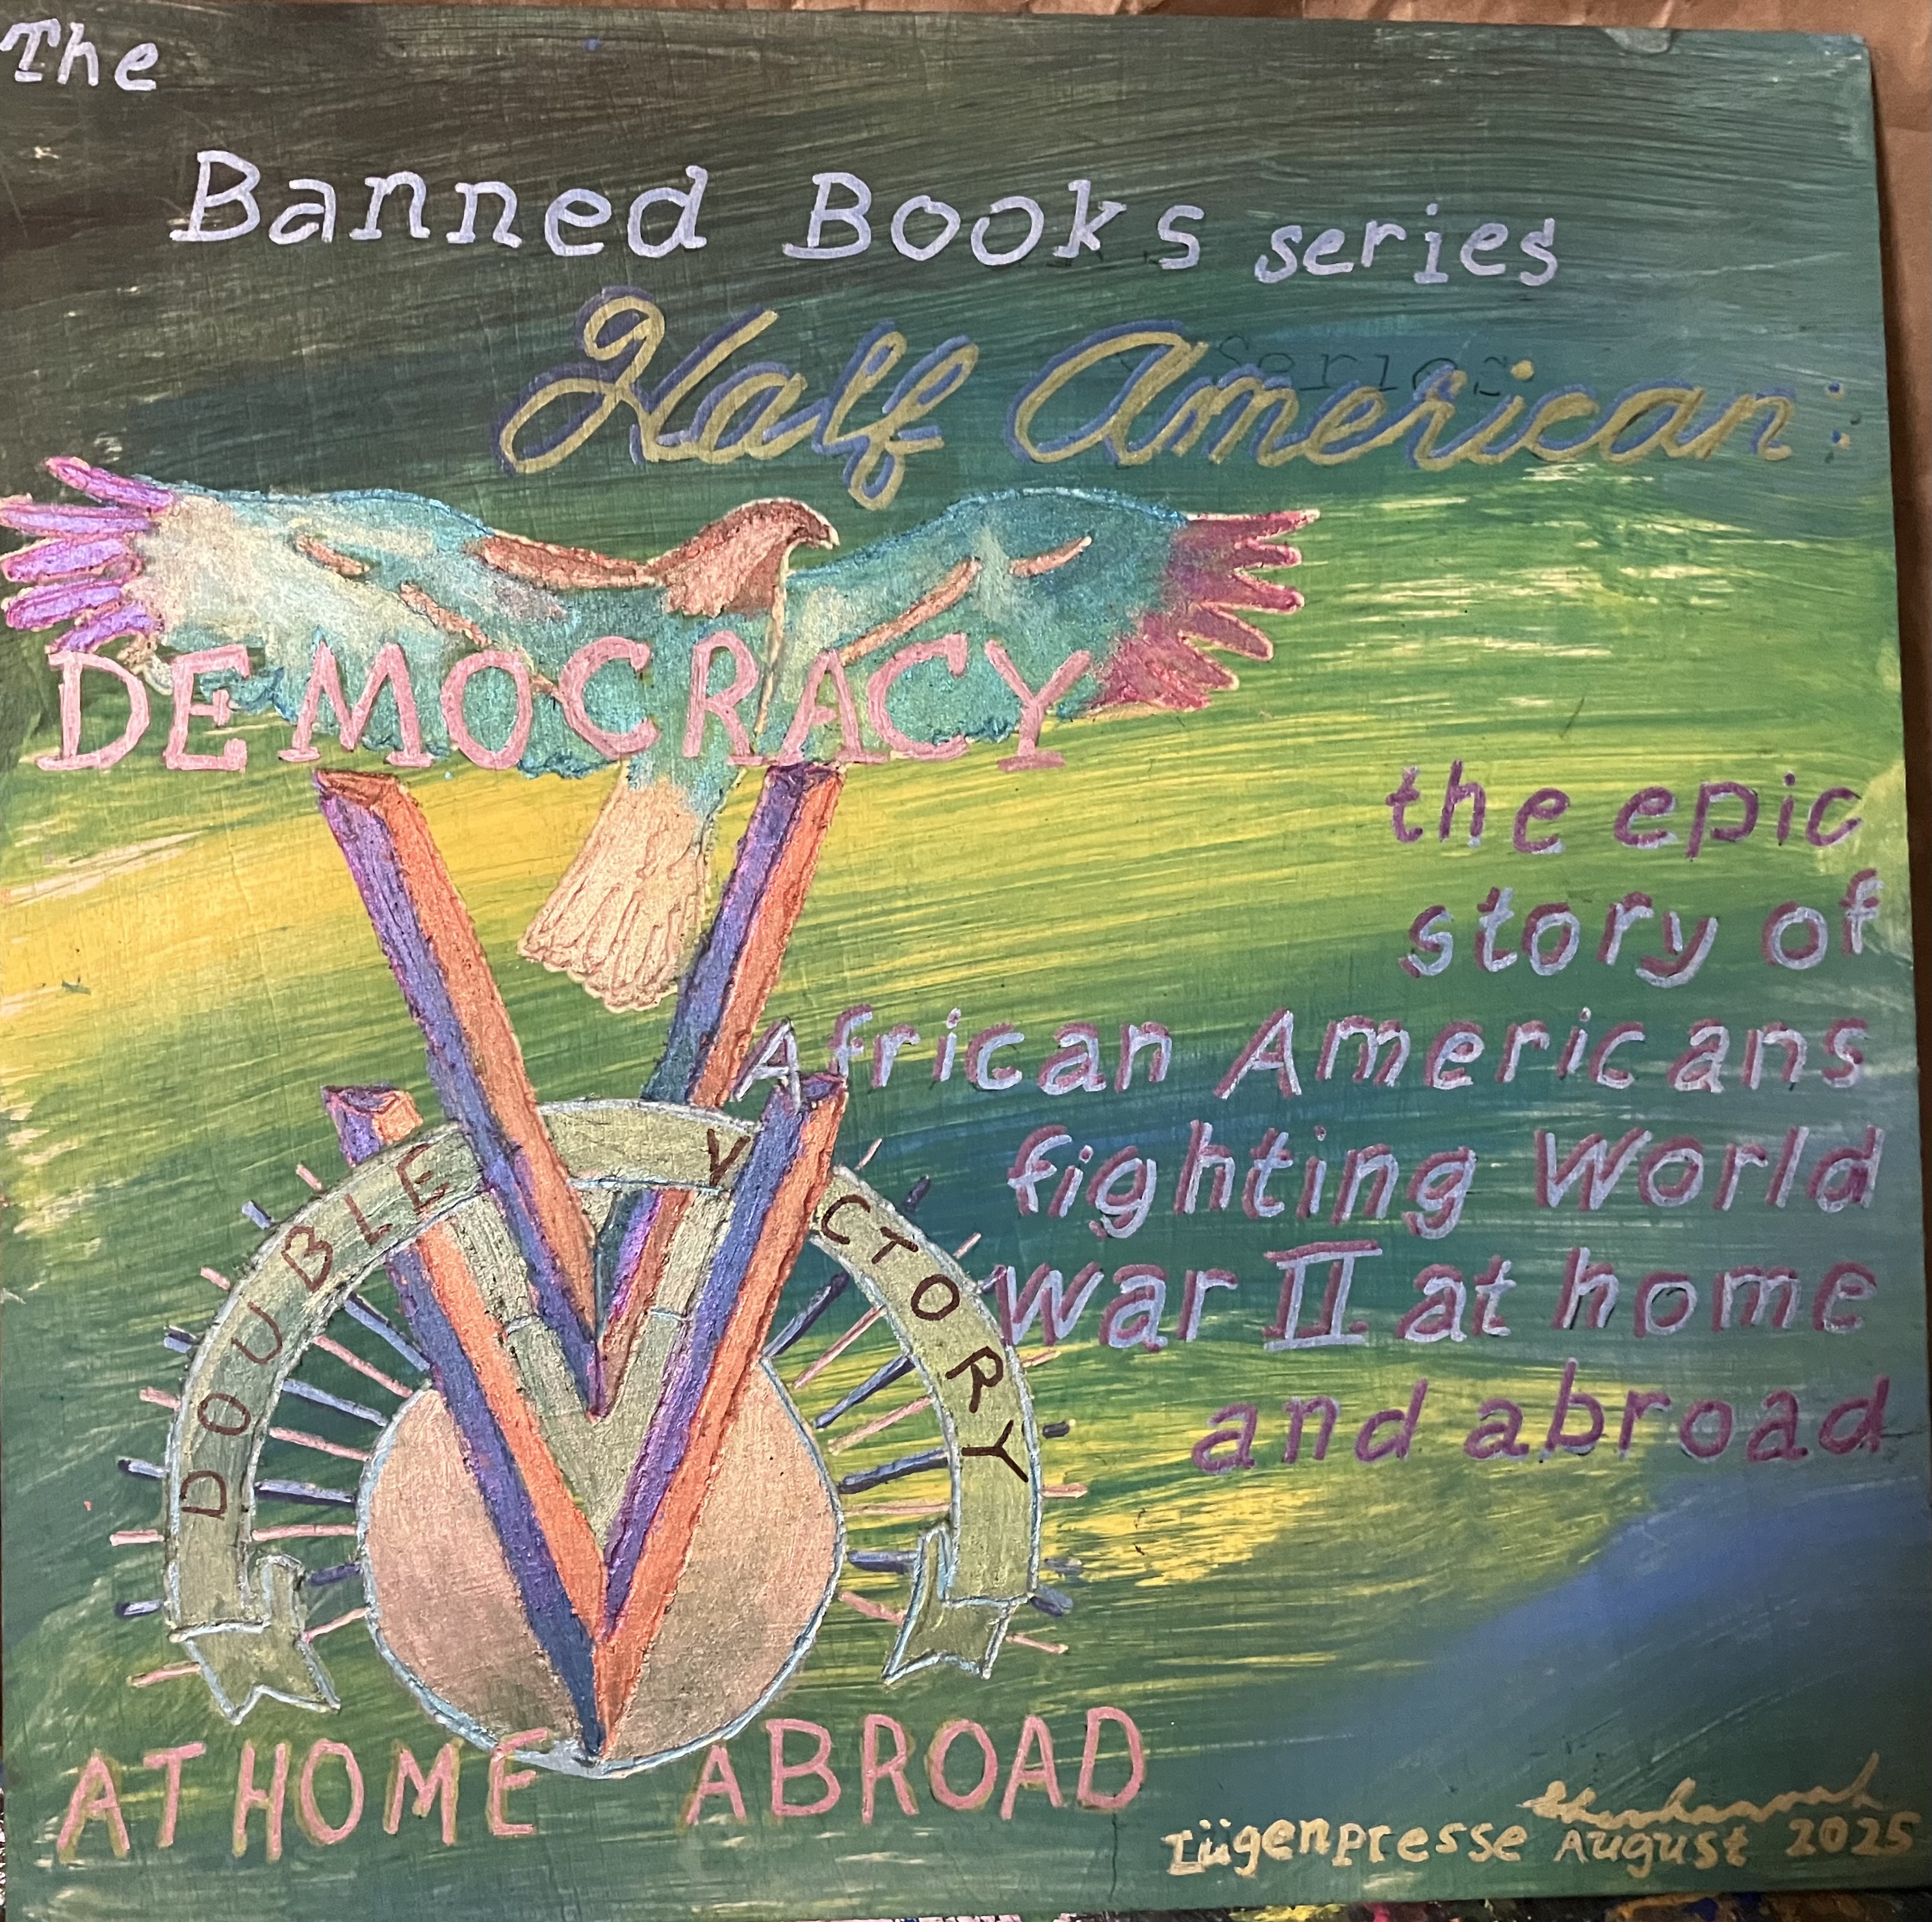 The
Banned Books series
Half American:
DEMOCRACY
the epic
story of
African Americans
fighting World
War II at home
and abroad
DOUBLE VICTORY
AT HOME ABROAD
Lügenpresse August 2025